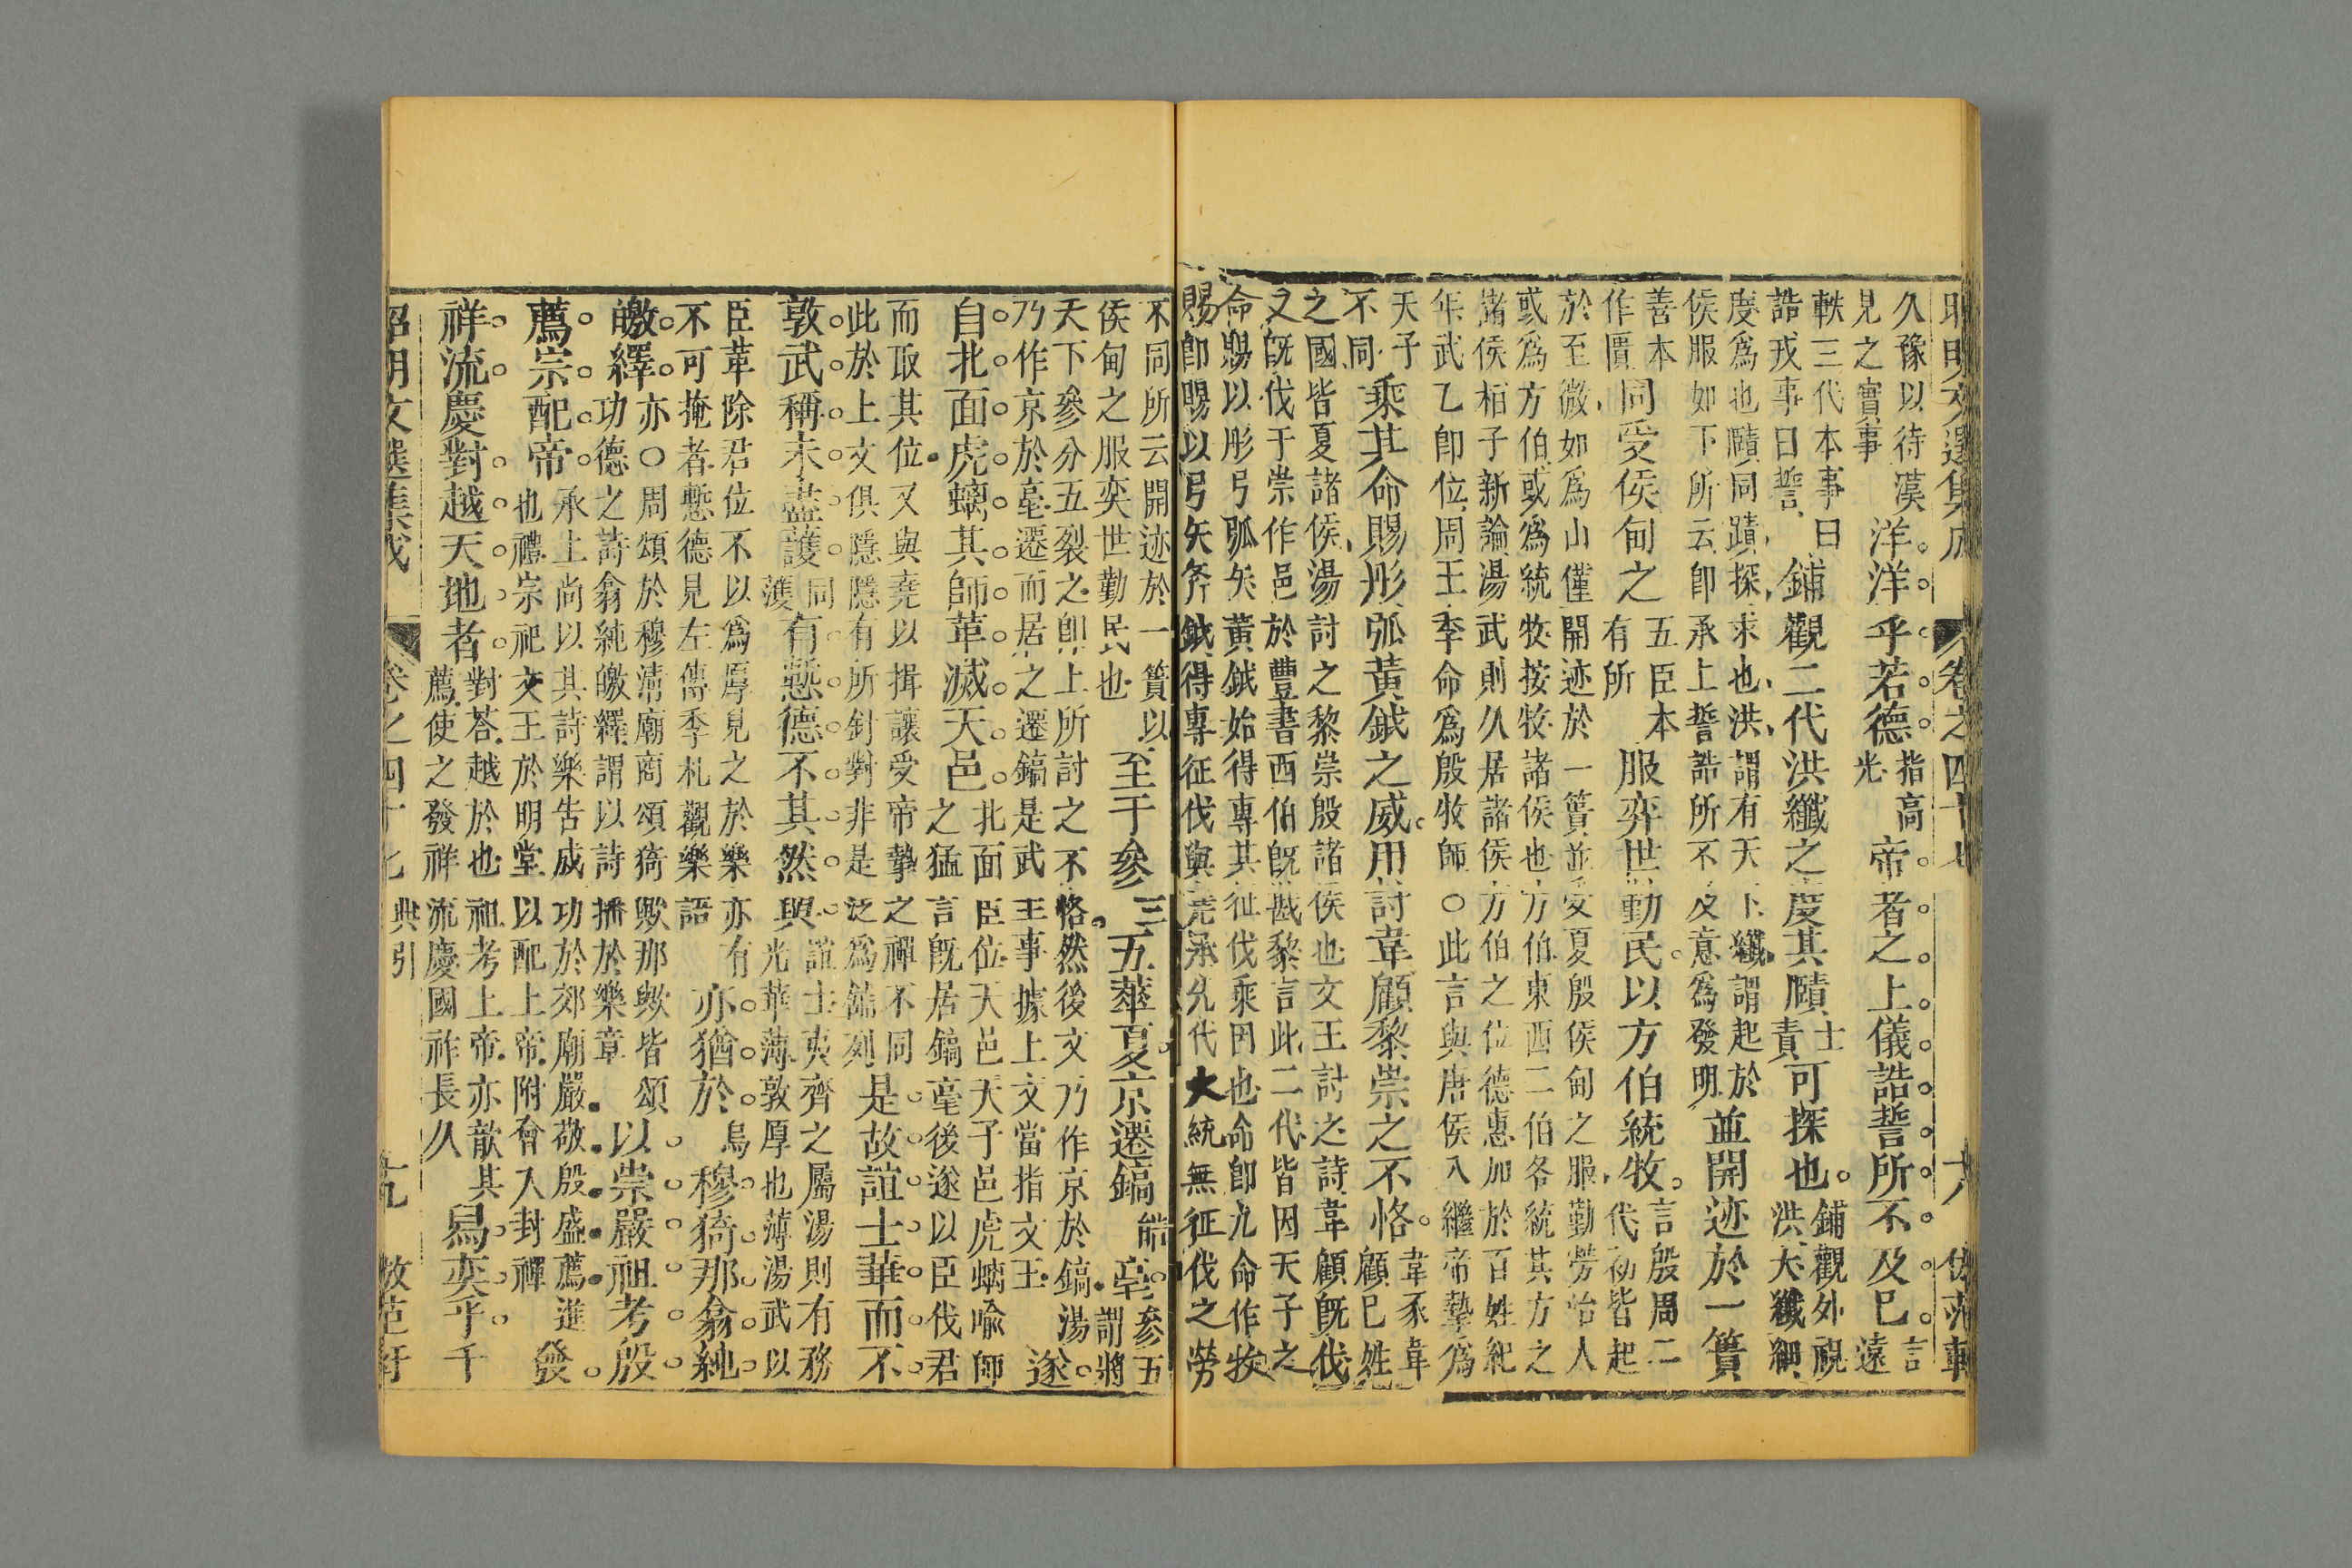 昭明文選集成 卷之四十七 十八 倣范軒
久豫以待漢見之實事洋洋乎若德指高光帝者之上儀誥誓所不及已言遠
軼三代本事曰誥戎事曰誓鋪觀二代洪纖之度其賾士責可探也鋪觀外視洪大纖細
度爲也賾同蹟探求也洪謂有天下纖謂起於
侯服如下所云卽承上誓誥所不及意爲發明並開迹於一簣
善本作匱同受侯甸之五臣本有所服弈世勤民以方伯統牧言殷周二代初皆起
於至微如爲山僅開迹於一簣並受夏殷侯甸之服勤勞治人
或爲方伯或爲統牧按牧諸侯也方伯東西二伯各統其方之
諸侯栢子新論湯武則久居諸侯方伯之位德惠加於百姓紀
年武乙卽位周王季命爲殷牧師○此言與唐侯入繼帝摯爲
天子不同乘其命賜彤弧黃鉞之威用討韋顧黎崇之不恪韋豕韋顧巳姓
之國皆夏諸侯湯討之黎崇殷諸侯也文王討之詩韋顧旣伐
又旣伐于崇作邑於豐書西伯旣戡黎言此二代皆因天子之
命賜以彤弓弧矢黃鉞始得專其征伐乘因也命卽九命作牧
賜卽賜以弓矢斧鉞得專征伐與堯承先代大統無征伐之勞
不同所云開迹於一簣以侯甸之服奕世勤民也至于參三五華夏京遷鎬皓亳參五謂將
天下參分五裂之卽上所討之不恪然後文乃作京於鎬湯
乃作京於亳遷而居之遷鎬是武王事據上文當指文王遂
自北面虎螭其師革滅天邑北面臣位天邑天子邑虎螭喻師之猛言旣居鎬亳後遂以臣伐君
而取其位又與堯以揖讓受帝摯之禪不同
此於上文俱隱隱有所針對非是泛爲鋪列是故誼士華而不
敦武稱未盡護同濩有慙德不其然與誼士夷齊之屬湯則有務光華薄敦厚也薄湯武以
臣革除君位不以爲厚見之於樂亦有
不可掩者慙德見左傳季札觀樂語亦猶於烏穆猗那翕純
皦繹亦○周頌於穆淸廟商頌猗歟那歟皆頌功德之詩翕純皦繹謂以詩播於樂章以崇嚴祖考殷
薦宗配帝承上尚以其詩樂告成功於郊廟嚴敬殷盛薦進也禮宗祀文王於明堂以配上帝附會入封禪發
祥流慶對越天地者對荅越於也祖考上帝亦歆其薦使之發祥流慶國祚長久舄奕乎千
昭明文選集成 卷之四十七 典引 十九 倣范軒